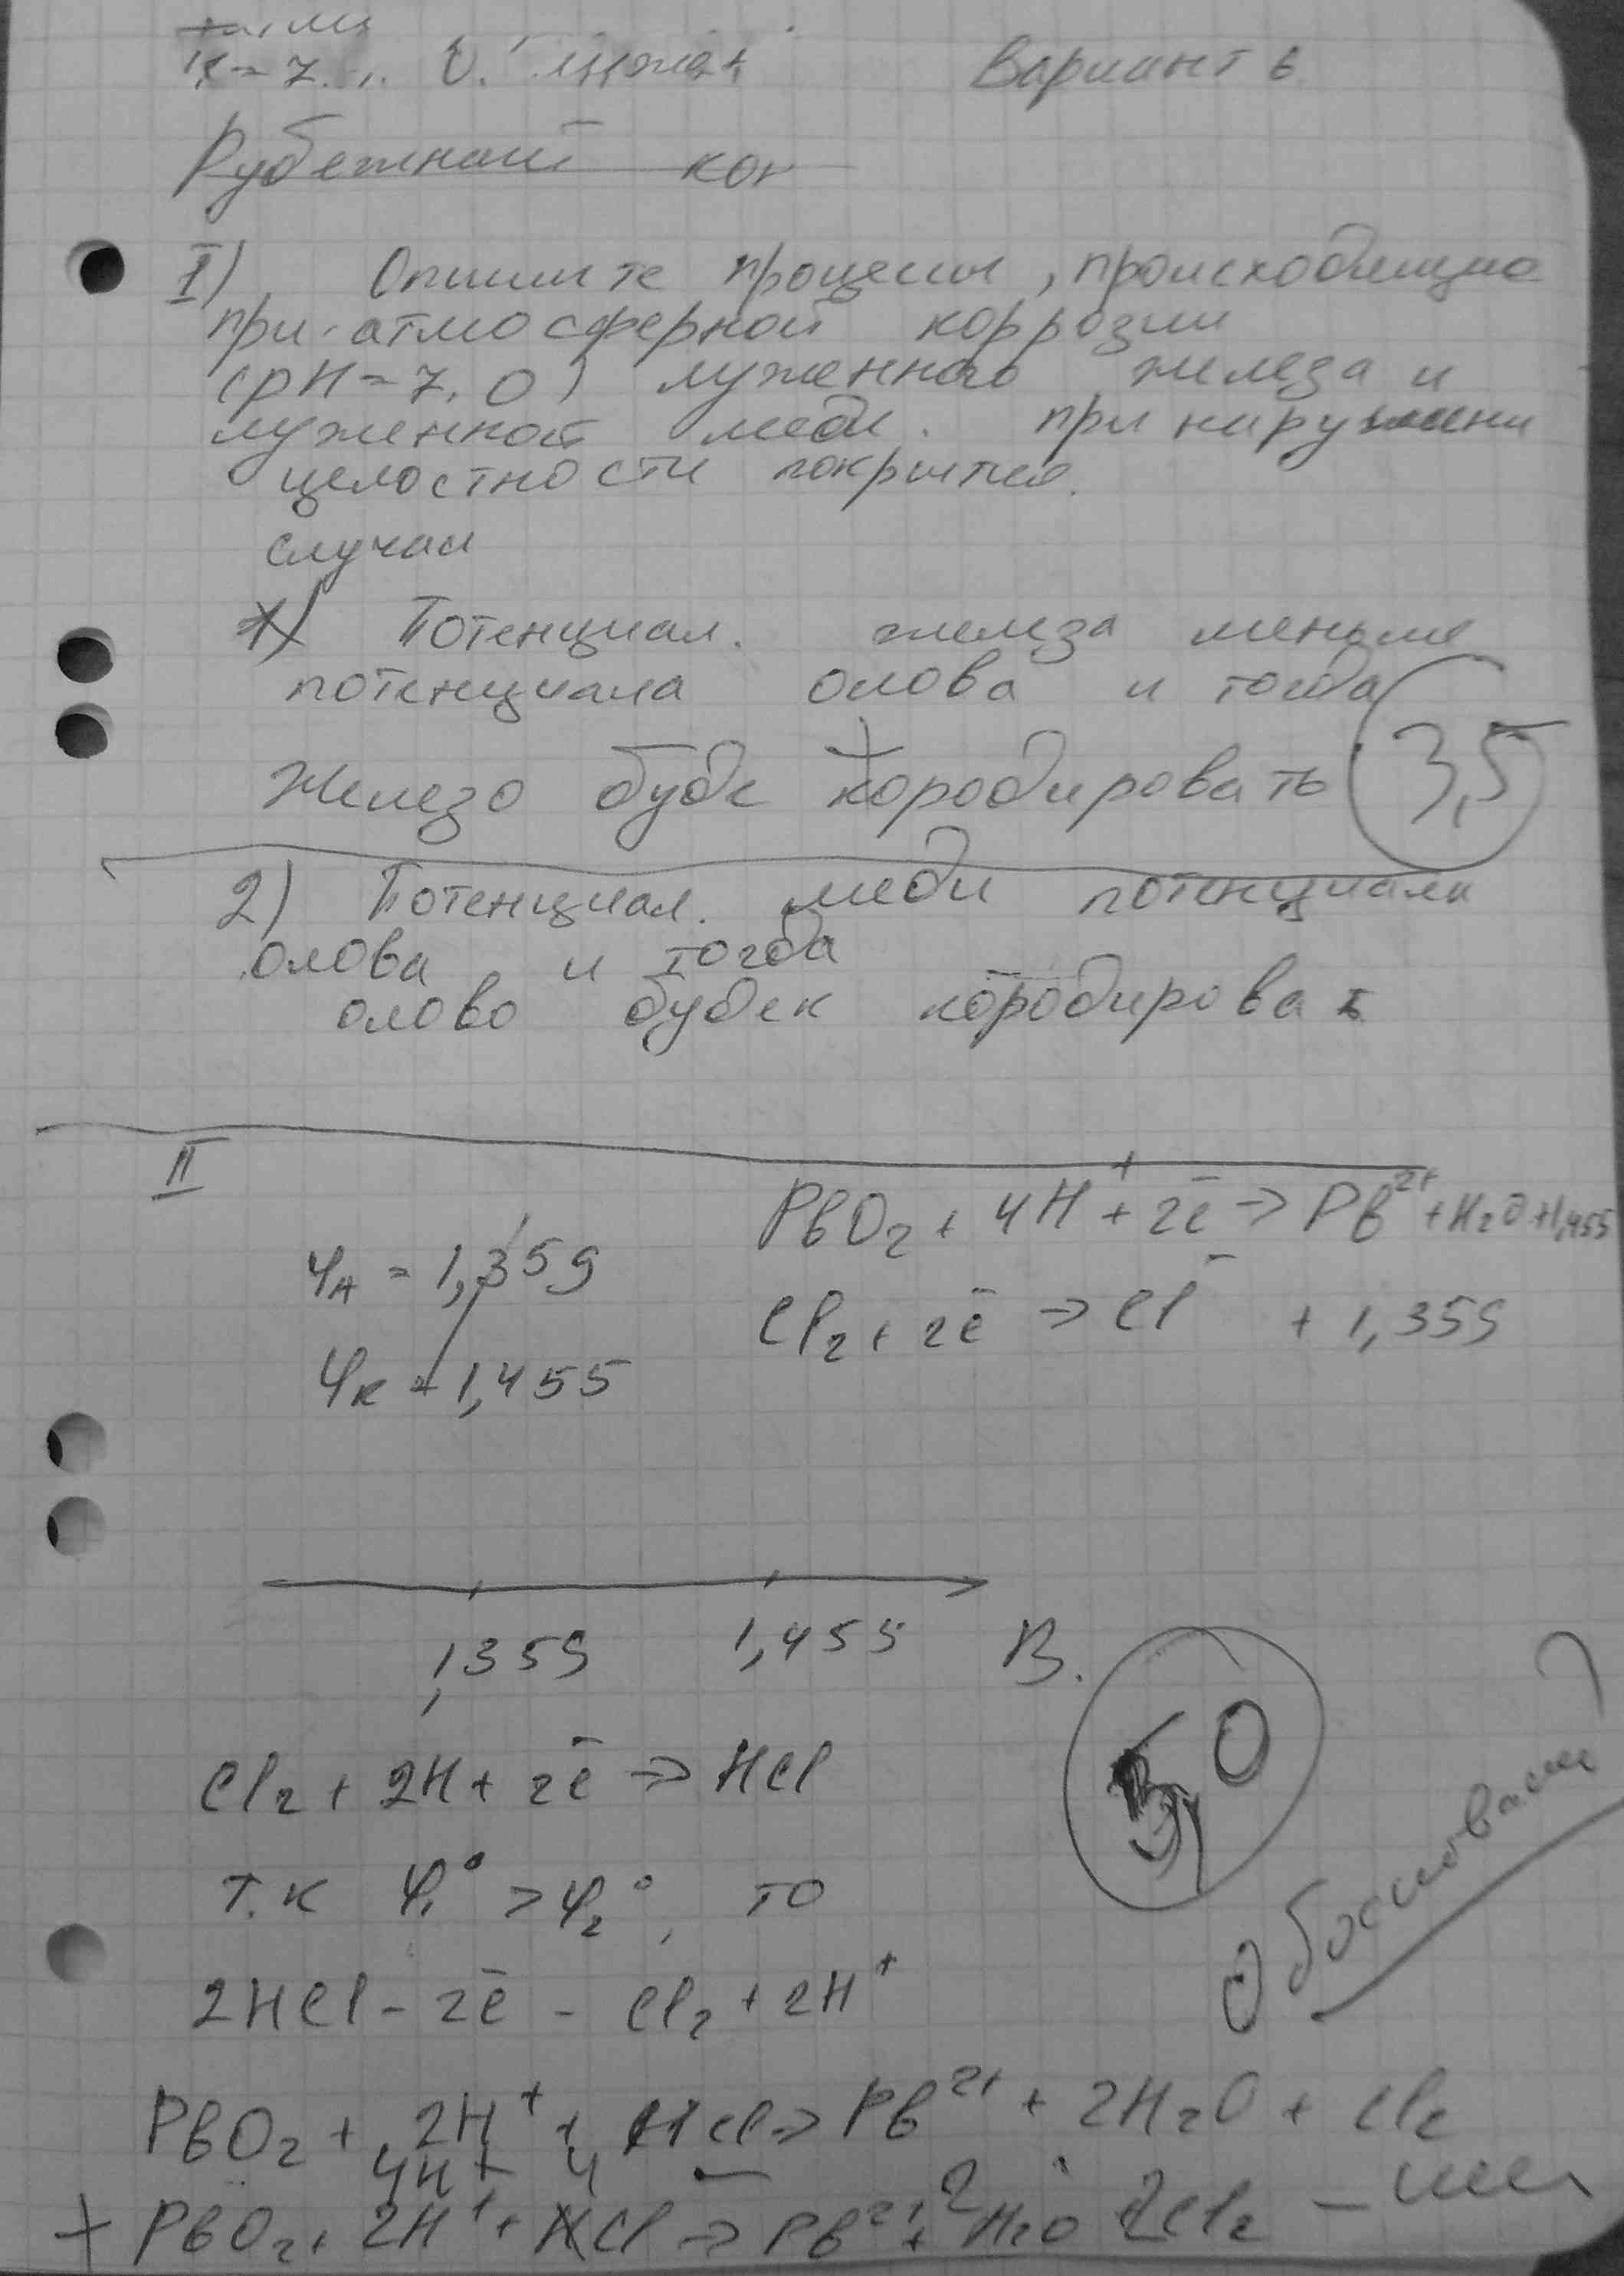 Вариант 6
Рубежный кон
I) Опишите процессы, происходящие
при атмосферной коррозии
(pH=7,0) луженного железа и
луженной меди. при нарушении
целостности покрытия.
случаи
1) Потенциал. железа меньше
потенциала олова и тогда
Железо буде кородировать
3,5
2) Потенциал. меди потенциала
олова и тогда
олово будек кородироват
II
PbO₂ + 4H⁺ + 2ē → Pb²⁺ + H₂O +1,455
φА = 1,359
Cl₂ + 2ē → Cl⁻ + 1,359
φк = 1,455
1,359 1,455 В.
Cl₂ + 2H + 2ē → HCl
5,0
т.к φ₁° > φ₂°, то
2HCl - 2ē - Cl₂ + 2H⁺
PbO₂ + 2H⁺ + HCl → Pb²⁺ + 2H₂O + Cl₂
4H+ 4
+ PbO₂ + 2H⁺ + Cl → Pb²⁺ + 2H₂O 2Cl₂